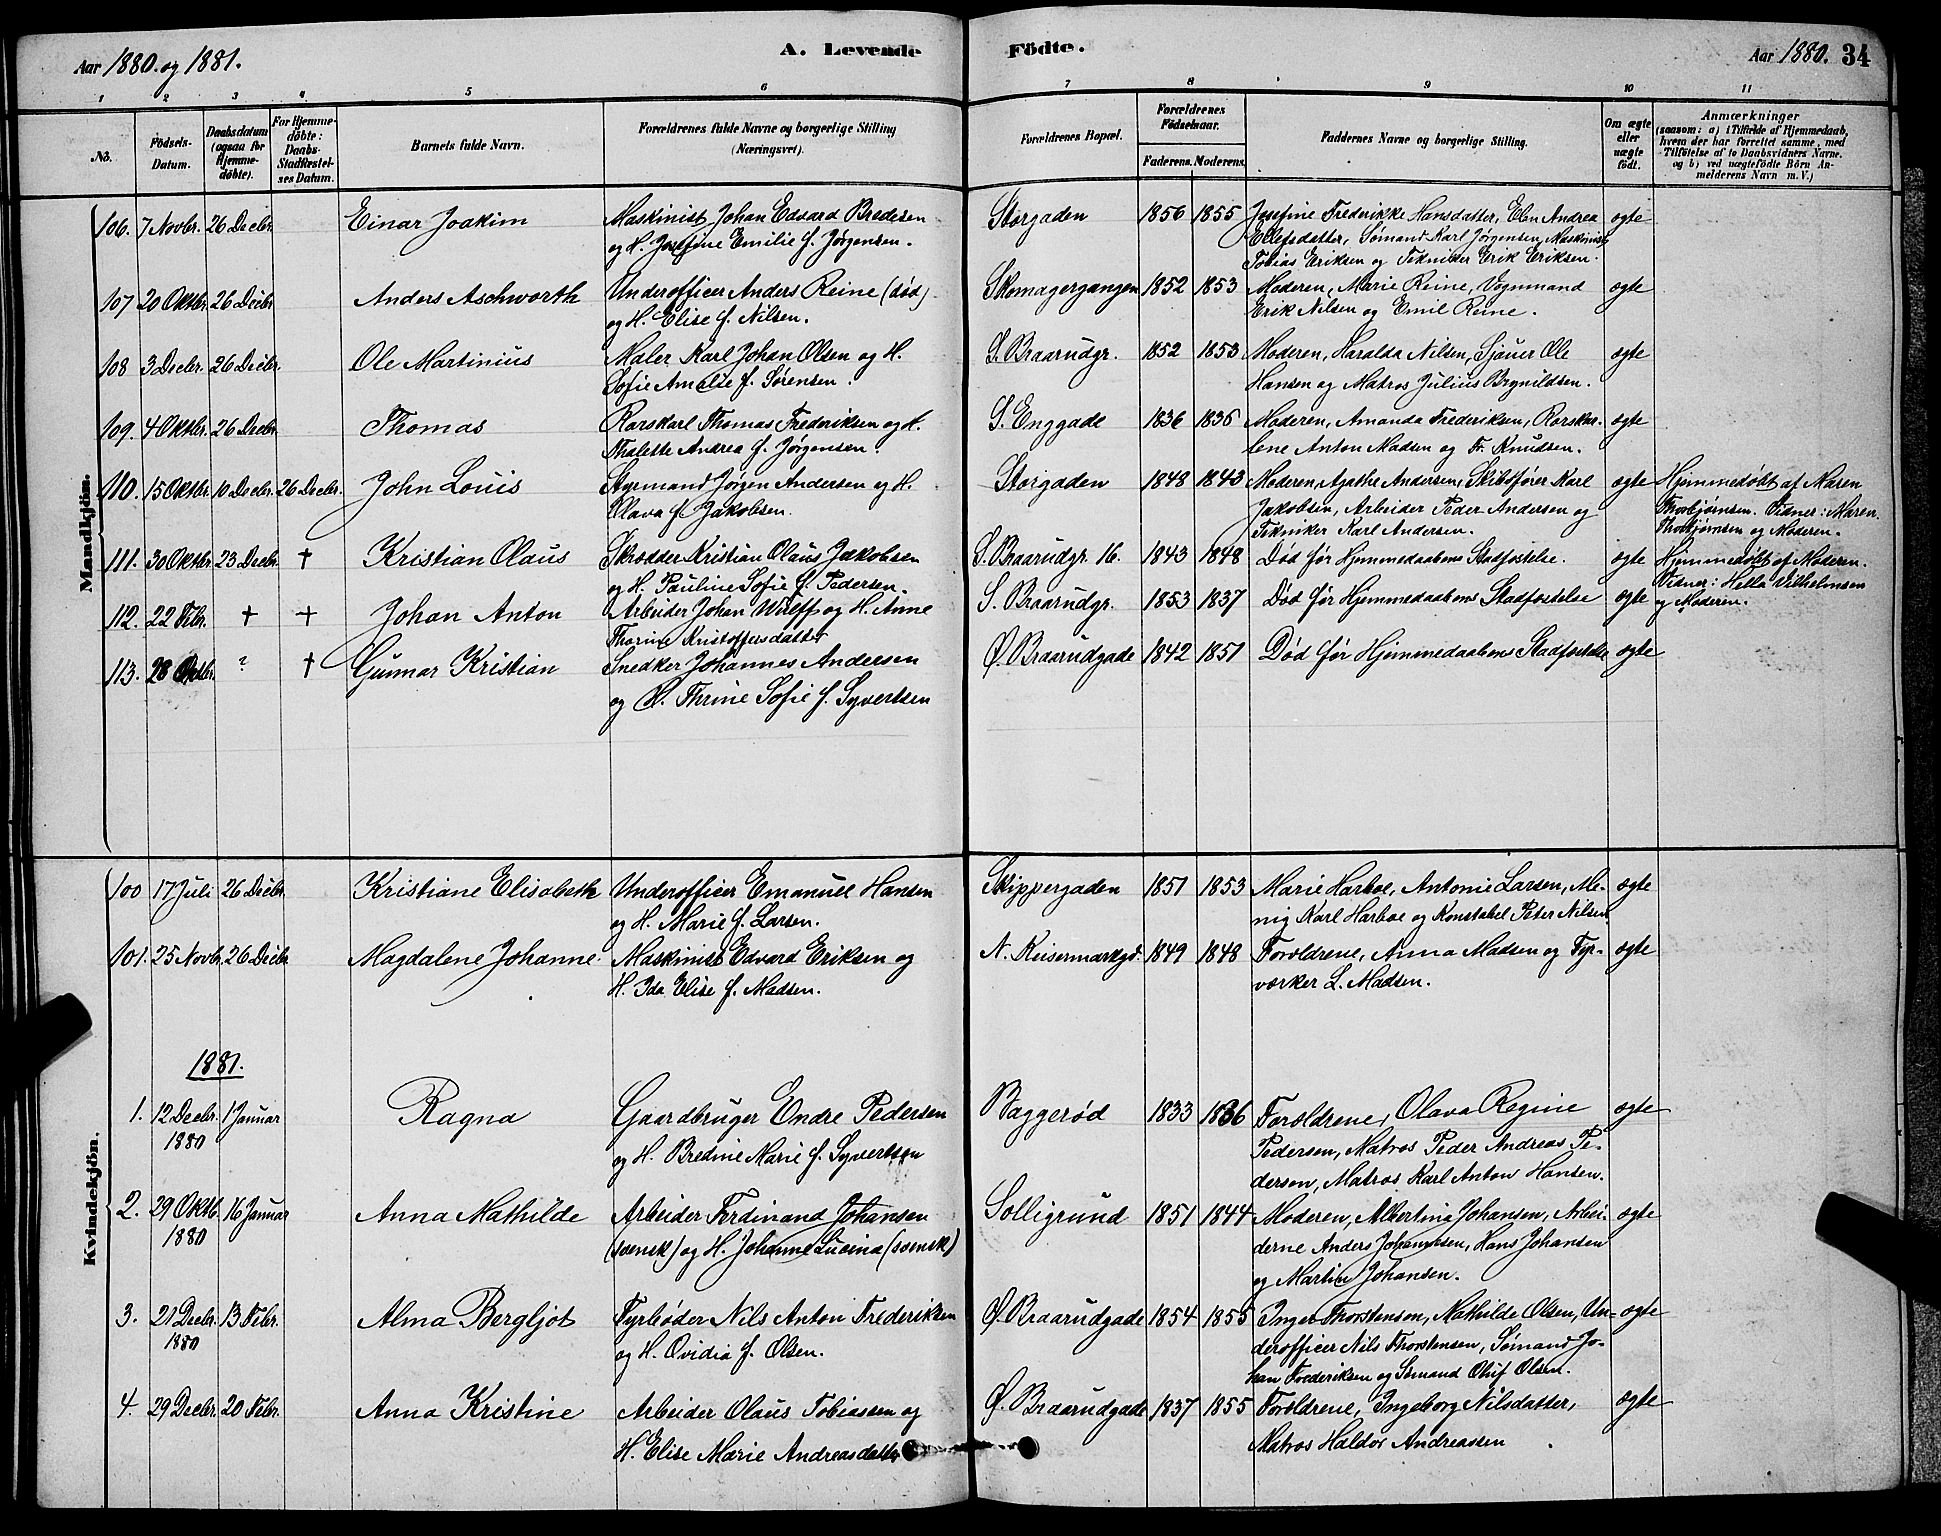 Aar 1880. og 1881.
A. Levende
Födte.
Aar 1880.
34
1 2 3 4 5 6 7 8 9 10 11
No.
Födsels-Datum.
Daabsdatum (ogsaa for Hjemme-döbte).
For Hjemme-döbte: Daabs-Stadfæstel-ses Datum.
Barnets fulde Navn.
Forældrenes fulde Navne og borgerlige Stilling (Næringsvei).
Forældrenes Bopæl.
Forældrenes Födselsaar.
Faderens. Moderens.
Faddernes Navne og borgerlige Stilling.
Om ægte eller uægte födt.
Anmærkninger
(saasom: a) i Tilfælde af Hjemmedaab, hvem der har forrettet samme, med Tilföielse af to Daabsvidners Navne. og b) ved uægtefödte Börn An-melderens Navn m. V.)
Mandkjön.
106. 7 Novbr. 26 Decbr. Einar Joakim Maskinist Johan Edvard Bredesen Storgaden 1856 1855 Josefine Frederikke Hansdatter, Elen Andrea ægte
og H. Josefine Emilie f. Jørgensen. Ellefsdatter, Sømand Karl Jørgensen, Maskinist
Tobias Eriksen og Tekniker Erik Eriksen.
107 20 Oktbr. 26 Decbr. Anders Aschworth Underofficer Anders Reine (død) Skomagergangen 1852 1853 Moderen, Marie Reine, Vognmand ægte
og H. Elise f. Nilsen. Erik Nilsen og Emil Reine.
108 3 Decbr. 26 Decbr. Ole Martinius Maler Karl Johan Olsen og H. S. Braarudgr. 1852 1853 Moderen, Haralda Nilsen, Sjauer Ole ægte
Sofie Amalie f. Sørensen. Hansen og Matros Julius Brynildsen.
109. 4 Oktbr. 26 Decbr. Thomas Rorskarl Thomas Frederiksen og H. S. Enggade 1836 1835 Moderen, Amanda Frederiksen, Rorskar- ægte
Thalette Andrea f. Jørgensen. lene Anton Madsen og Fr. Knudsen.
110. 15 Oktbr. 10 Decbr. 26 Decbr. John Louis Styrmand Jørgen Andersen og H. Storgaden 1848 1843 Moderen, Agathe Andersen, Skibsfører Karl ægte Hjemmedøbt af Maren
Olava f. Jakobsen. Jakobsen, Arbeider Peder Andersen og Thorbjørnsen. Vidner: Maren
Tekniker Karl Andersen. Thorbjørnsen og Moderen.
111. 30 Oktbr. 23 Decbr. † Kristian Olaus Skrædder Kristian Olaus Jakobsen S. Braarudgr. 16. 1843 1848 Død før Hjemmedaabens Stadfæstelse. ægte Hjemmedøbt af Moderen.
og H. Pauline Sofie f. Pedersen. Vidner: Hella Vilhelmsen
112. 22 Febr. † † Johan Anton Arbeider Johan Wulff og H. Anne S. Braarudgr. 1853 1837 Død før Hjemmedaabens Stadfæstelse ægte og Moderen.
Thorine Kristoffersdatter
113. 28 Oktbr. ? † Gunnar Kristian Snedker Johannes Andersen Ø. Braarudgade 1842 1851 Død før Hjemmedaabens Stadfæstelse ægte
og H. Thrine Sofie f. Syvertsen
Kvindekjön.
100 17 Juli 26 Decbr. Kristiane Elisabeth Underofficer Emanuel Hansen Skippergaden 1851 1853 Marie Harboe, Antonie Larsen, Me- ægte
og H. Marie f. Larsen. nig Karl Harboe og Konstabel Peter Nilsen
101. 25 Novbr. 26 Decbr. Magdalene Johanne Maskinist Edvard Eriksen og N. Keisermarkgd. 1849 1848 Forældrene, Anna Madsen og Fyr- ægte
H. Ida Elise f. Madsen. værker L. Madsen.
1881.
1. 12 Decbr. 1 Januar Ragna Gaardbruger Endre Pedersen Baggerød 1833 1836 Forældrene, Olava Regine ægte
1880 og H. Bredine Marie f. Syvertsen Pedersen, Matros Peder Andreas Pe-
dersen, Matros Karl Anton Hansen.
2. 29 Oktb. 16 Januar Anna Mathilde Arbeider Ferdinand Johansen Solligrund 1851 1844 Moderen, Albertina Johansen, Arbei- ægte
1880 (svensk) og H. Johanne Lucina (svensk) derne Anders Johannesen, Hans Johansen
og Martin Johansen.
3. 21 Decbr. 13 Febr. Alma Bergljot Fyrbøder Nils Anton Frederiksen Ø. Braarudgade 1854 1855 Inger Thorstensen, Mathilde Olsen, Un- ægte
1880 og H. Ovidia f. Olsen. derofficer Nils Thorstensen, Sømand Jo-
han Frederiksen og Sømand Oluf Olsen.
4. 29 Decbr. 20 Febr. Anna Kristine Arbeider Olaus Tobiassen og Ø. Braarudgade 1837 1855 Forældrene, Ingeborg Nilsdatter, ægte
H. Elise Marie Andreasdatter Matros Haldor Andreassen